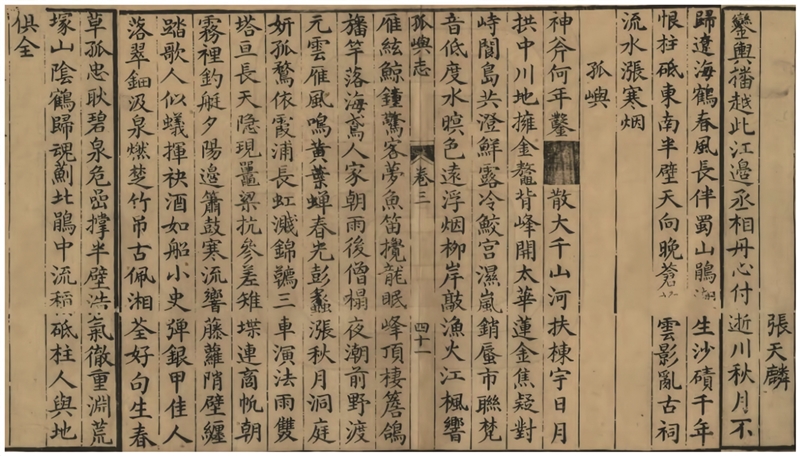 張天麟
鑾輿播越此江邊丞相丹心付逝川秋月不
歸遼海鶴春風長伴蜀山鵑生沙磧千年
恨柱砥東南半壁天向晚蒼雲影亂古祠
流水漲寒烟
孤嶼
神斧何年鑿散大千山河扶棟宇日月
拱中川地擁金鼇背峰開太華蓮金焦疑對
峙閬島共澄鮮露冷鮫宮濕嵐銷蜃市聯梵
音低度水暝色遠浮烟柳岸敲漁火江楓響
孤嶼志 卷三 四十一
雁絃鯨鐘驚客夢魚笛攪龍眠峰頂棲簷鴿
旛竿落海鳶人家朝雨後僧榻夜潮前野渡
元雲雁風鳴黃葉蟬春光彭蠡漲秋月洞庭
妍孤鶩依霞浦長虹濺錦韉三車演法雨雙
塔亘長天隱現鼉梁抗參差雉堞連商帆朝
霧裡釣艇夕陽邊簫鼓寒流響藤蘿陗壁纏
踏歌人似蟻揮袂酒如船小史彈銀甲佳人
落翠鈿汲泉燃楚竹弔古佩湘荃好句生春
草孤忠耿碧泉危嵒撐半壁浩氣徹重淵荒
塚山陰鶴歸魂薊北鵑中流稱砥柱人與地
俱全